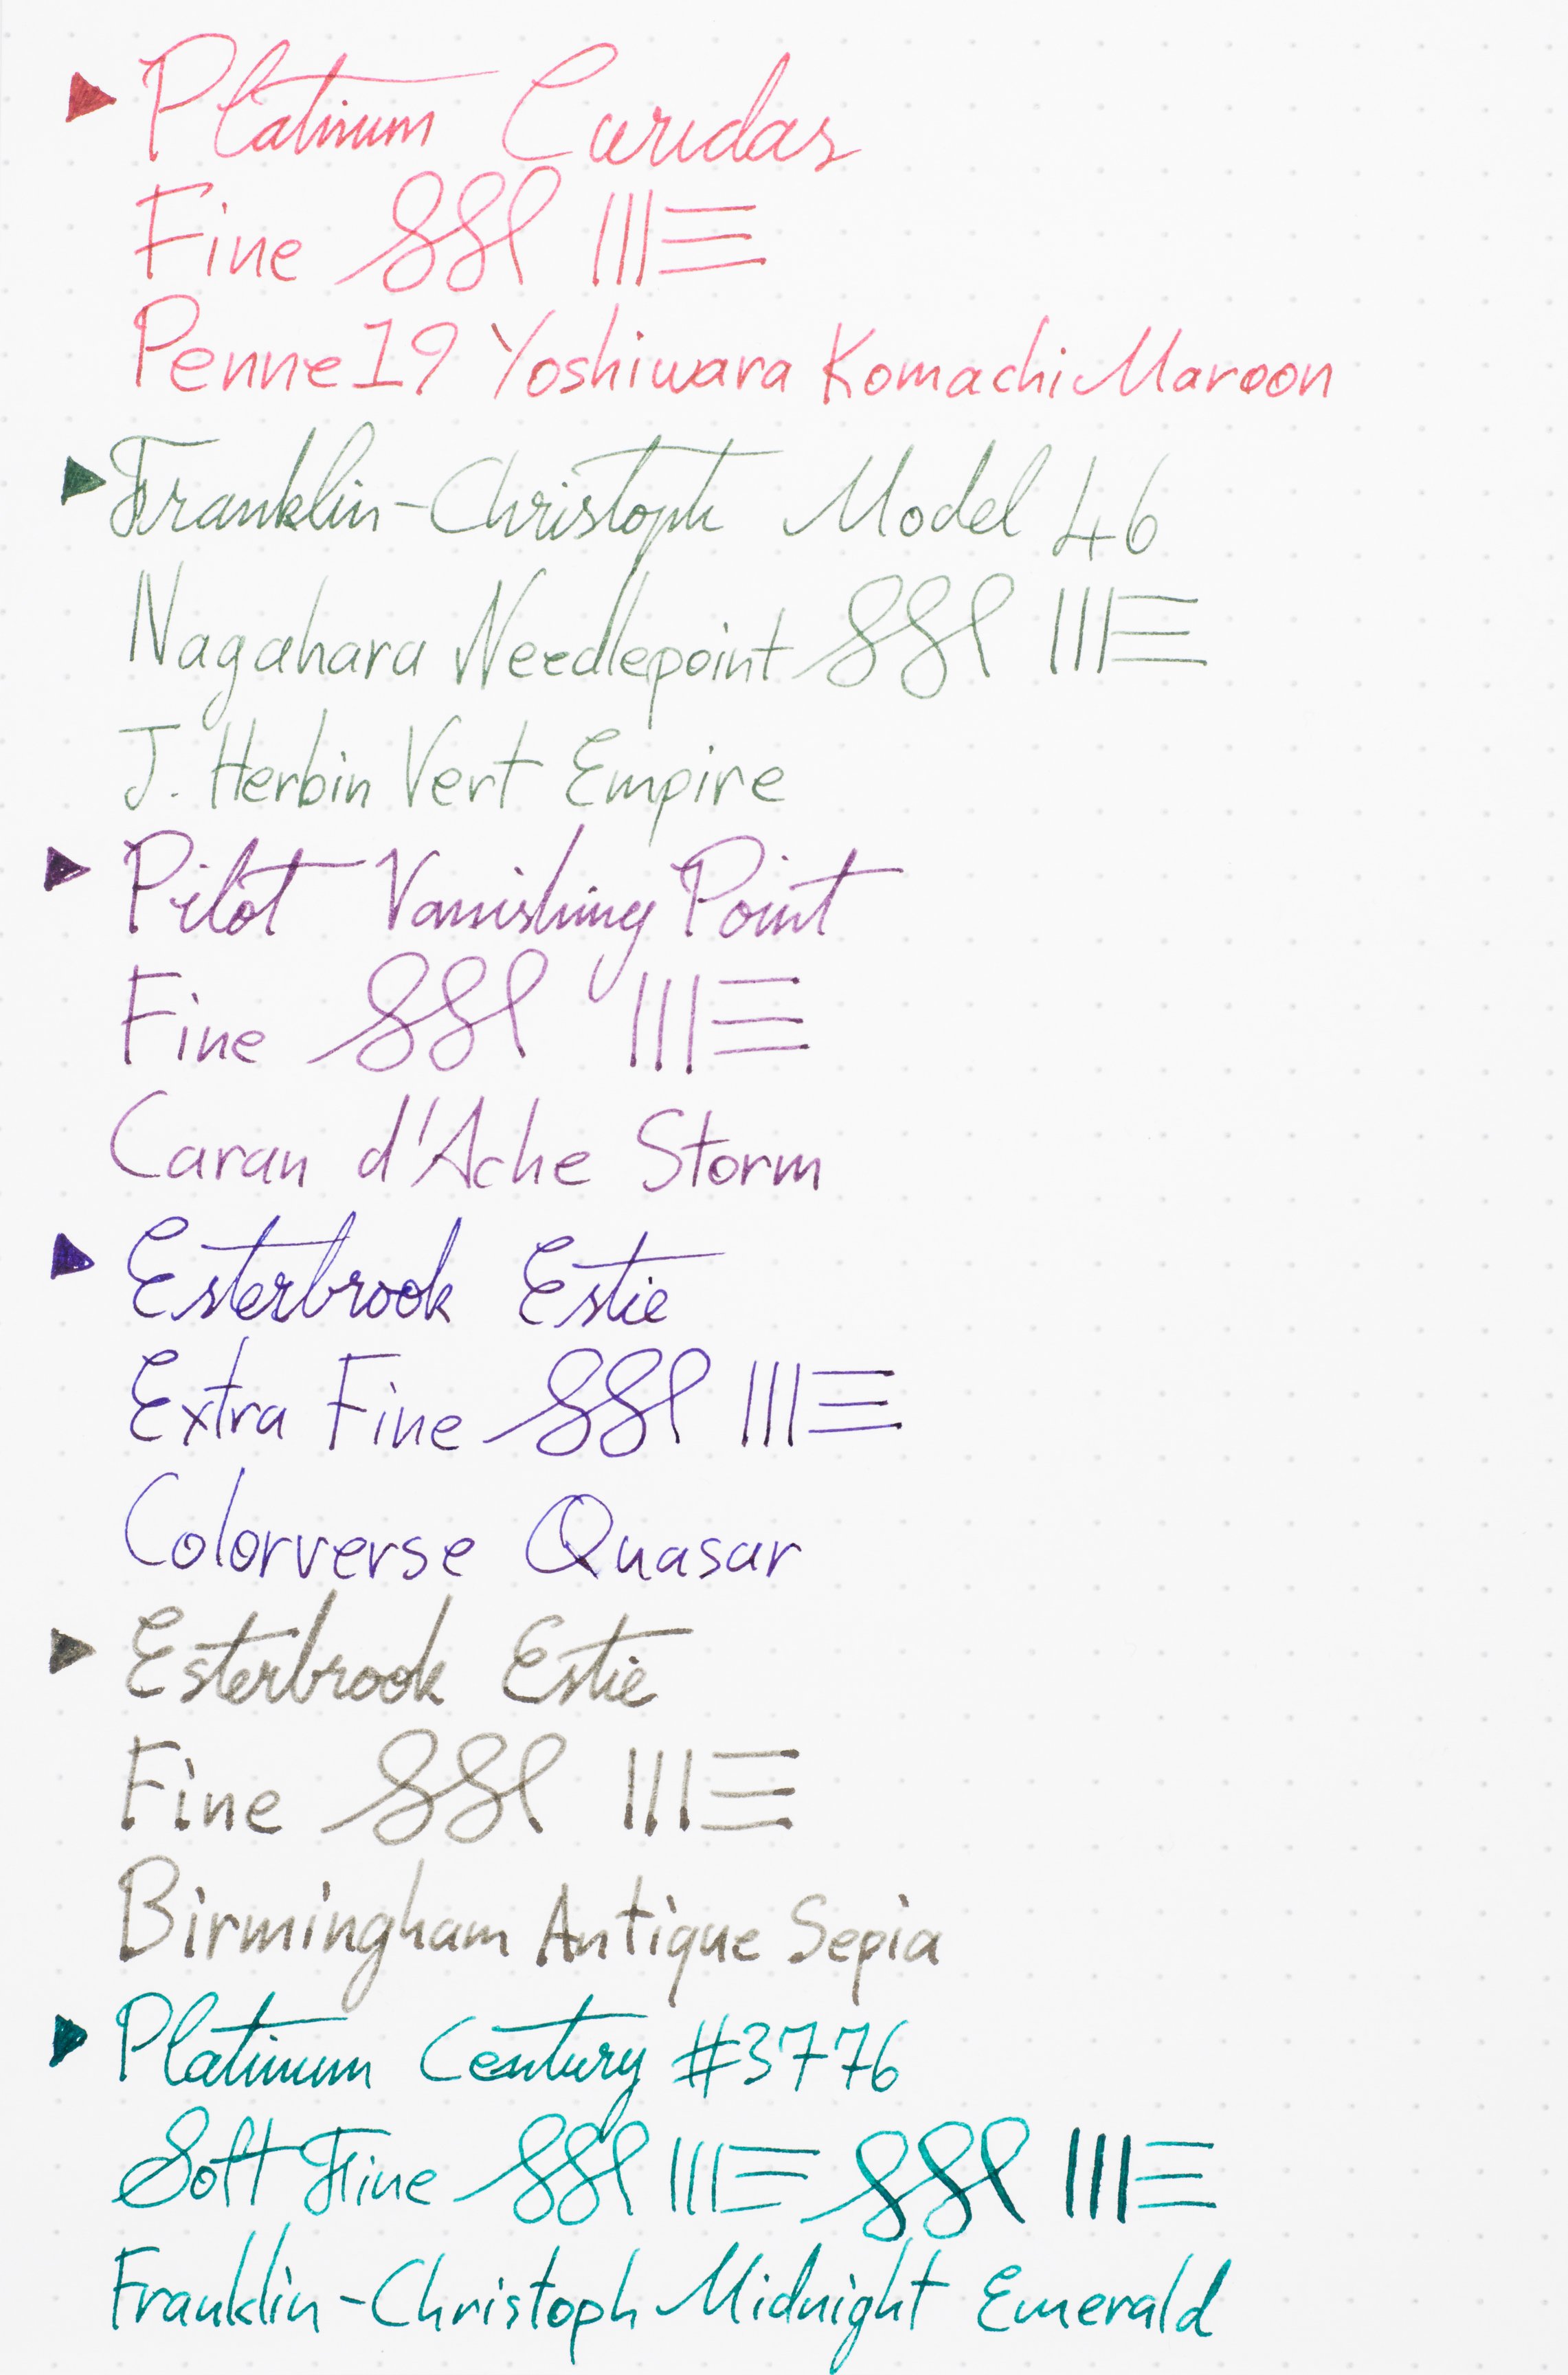 Platinum Curidas
Fine
Penne19 Yoshiwara Komachi Maroon
Franklin-Christoph Model 46
Nagahara Needlepoint
J. Herbin Vert Empire
Pilot Vanishing Point
Fine
Caran d'Ache Storm
Esterbrook Estie
Extra Fine
Colorverse Quasar
Esterbrook Estie
Fine
Birmingham Antique Sepia
Platinum Century #3776
Soft Fine
Franklin-Christoph Midnight Emerald